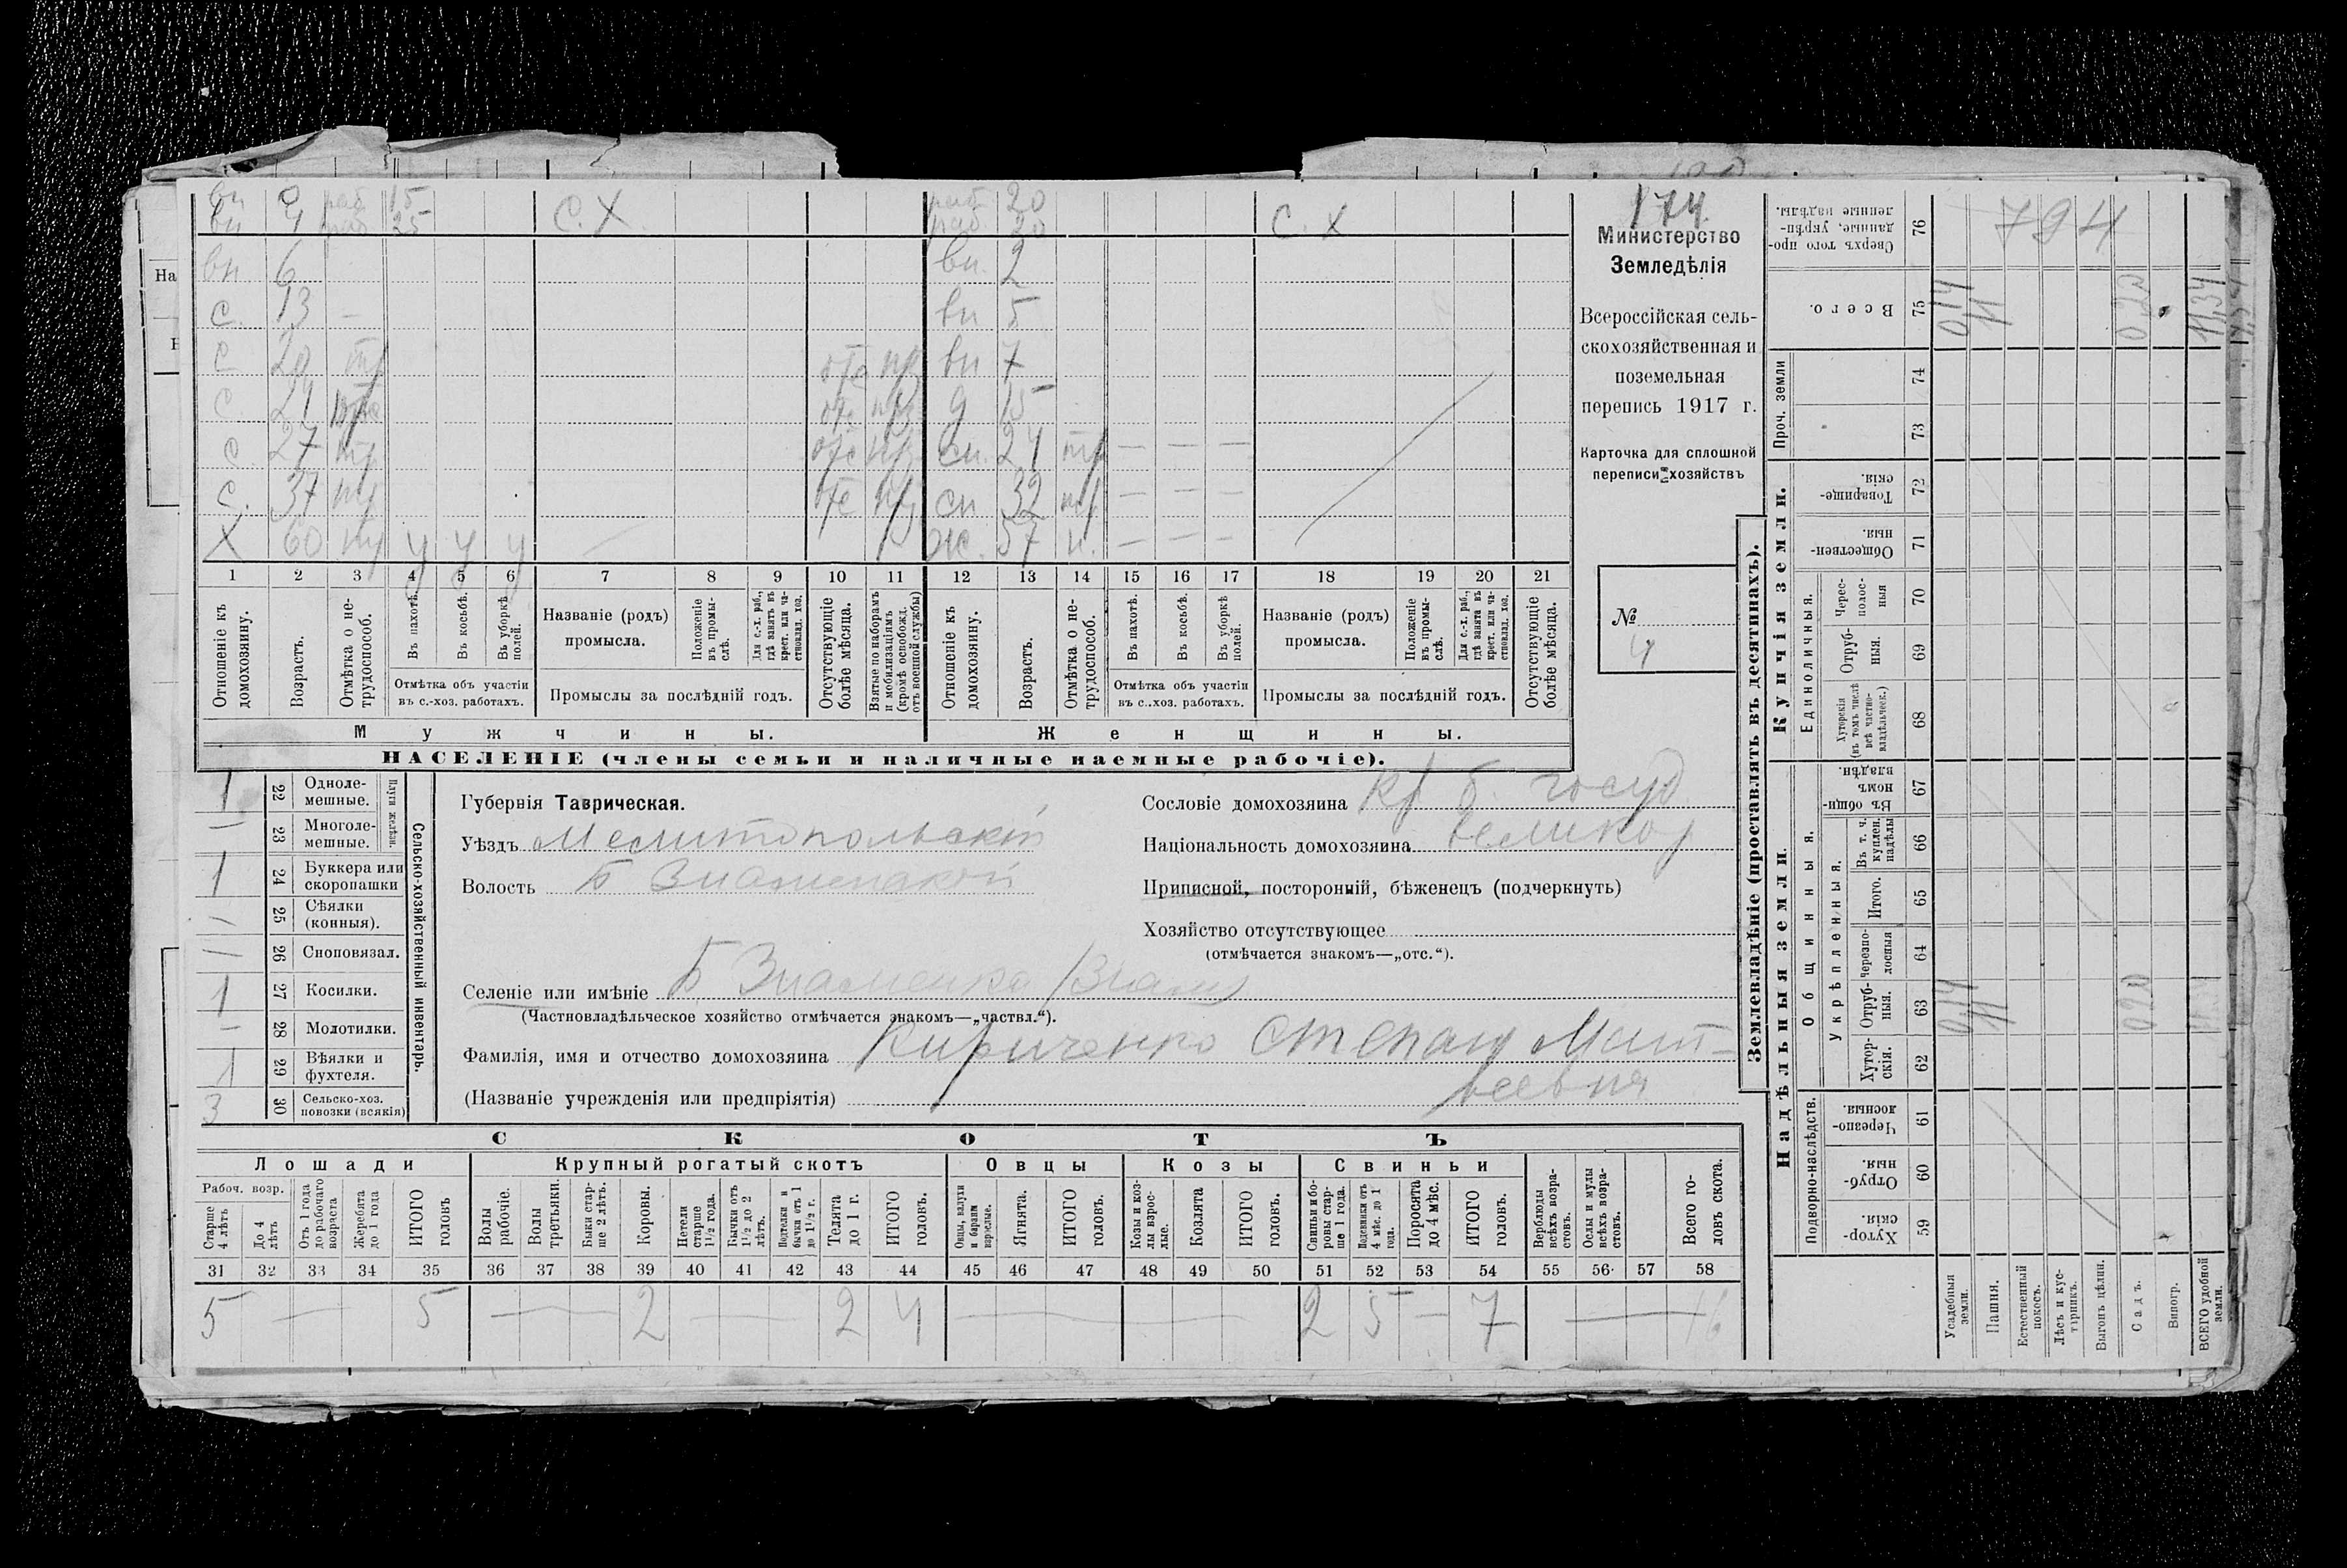 вн 0 раб 15 раб 20
вн 4 раб 25 С.Х. раб 20 С.Х
вн 6 вн. 2
с. 13 – вн 5
с 20 тр отс пр вн 7
с. 21 отс пр д 15
с. 27 тр отс пр сн. 24 тр — — —
с. 37 тр отс пр сн 32 тр — — —
Х 60 у у у ж. 57 н. — — —
1 2 3 4 5 6 7 8 9 10 11 12 13 14 15 16 17 18 19 20 21
Отношеніе къ домохозяину.
Возрастъ.
Отмѣтка о не-трудоспособ.
Въ пахотѣ.
Въ косьбѣ.
Въ уборкѣ полей.
Отмѣтка объ участіи
въ с.-хоз. работахъ.
Названіе (родъ)
промысла.
Положеніе въ промы-слѣ.
Для с.-х. раб., гдѣ занятъ въ крест. или ча-ствовлад. хоз.
Промыслы за послѣдній годъ.
Отсутствующіе болѣе мѣсяца.
Взятые по наборамъ и мобилизаціямъ (кромѣ освобожд. отъ военной службы)
Отношеніе къ домохозяину.
Возрастъ.
Отмѣтка о не-трудоспособ.
Въ пахотѣ.
Въ косьбѣ.
Въ уборкѣ полей.
Отмѣтка объ участіи
въ с.-хоз. работахъ.
Названіе (родъ)
промысла.
Положеніе въ промы-слѣ.
Для с.-х. раб., гдѣ занята въ крест. или ча-ствовлад. хоз.
Промыслы за послѣдній годъ.
Отсутствующіе болѣе мѣсяца.
Мужчины.
Женщины.
НАСЕЛЕНІЕ (члены семьи и наличные наемные рабочіе).
174.
Министерство
Земледѣлія
Всероссійская сель-
скохозяйственная и
поземельная
перепись 1917 г.
Карточка для сплошной
переписи хозяйствъ
№
4
1 22 Одноле-мешные.
— 23 Многоле-мешные.
Плуги желѣзн.
1 24 Буккера или скоропашки
— 25 Сѣялки (конныя).
— 26 Сноповязал.
1 27 Косилки.
— 28 Молотилки.
1 29 Вѣялки и фухтеля.
3 30 Сельско-хоз. повозки (всякія)
Сельско-хозяйственный инвентарь.
Губернія Таврическая.
Уѣздъ Мелитопольскій
Волость Б Знаменской
Селеніе или имѣніе Б Знаменка (Знам)
(Частновладѣльческое хозяйство отмѣчается знакомъ—„частвл.“).
Фамилія, имя и отчество домохозяина Кириченко Степан Мат-
веевич
(Названіе учрежденія или предпріятія)
Сословіе домохозяина кр б. госуд
Національность домохозяина великор
Приписной, посторонній, бѣженецъ (подчеркнуть)
Хозяйство отсутствующее
(отмѣчается знакомъ—„отс.“).
СКОТЪ
Лошади
Рабоч. возр.
Старше 4 лѣтъ
До 4 лѣтъ
Отъ 1 года до рабочаго возраста
Жеребята до 1 года
ИТОГО головъ
Крупный рогатый скотъ
Волы рабочіе.
Волы третьяки.
Быки стар-ше 2 лѣтъ.
Коровы.
Нетели старше 1½ года.
Бычки отъ 1½ до 2 лѣтъ.
Подтелки и бычки отъ 1 до 1½ г.
Телята до 1 г.
ИТОГО головъ.
Овцы
Овцы, валухи и бараны взрослые.
Ягнята.
ИТОГО головъ.
Козы
Козы и коз-лы взрос-лые.
Козлята
ИТОГО головъ.
Свиньи
Свиньи и бо-ровы стар-ше 1 года.
Подсвинки отъ 4 мѣс. до 1 года.
Поросята до 4 мѣс.
ИТОГО головъ.
Верблюды всѣхъ возра-стовъ.
Ослы и мулы всѣхъ возра-стовъ.
Всего го-ловъ скота.
31 32 33 34 35 36 37 38 39 40 41 42 43 44 45 46 47 48 49 50 51 52 53 54 55 56 57 58
5 — 5 — 2 — 2 4 — 2 5 — 7 — 16
Землевладѣніе (проставлять въ десятинахъ).
Надѣльныя земли.
Купчія земли.
Проч. земли
Подворно-наслѣдств.
Общинныя.
Укрѣпленныя.
Единоличныя.
Хутор-скія. 59
Отруб-ныя. 60
Черезпо-лосныя. 61
Хутор-скія. 62
Отруб-ныя. 63
Черезпо-лосныя 64
Итого. 65
Въ т. ч. куплен. надѣлы 66
Въ общи-номъ владѣн. 67
Хуторскія (въ томъ числѣ всѣ частно-владѣльческ.) 68
Отруб-ныя. 69
Черес-полос-ныя 70
Обществен-ныя. 71
Товарище-скія. 72
73
74
Всего. 75
Сверхъ того про-данные, укрѣп-ленные надѣлы. 76
Усадебныя земли.
Пашня.
Естественный покосъ.
Лѣсъ и кус-тарникъ.
Выгонъ цѣлин.
Садъ.
Виногр.
ВСЕГО удобной земли.
0,14 11 0,20 11,34
0,14 11 0,20
794